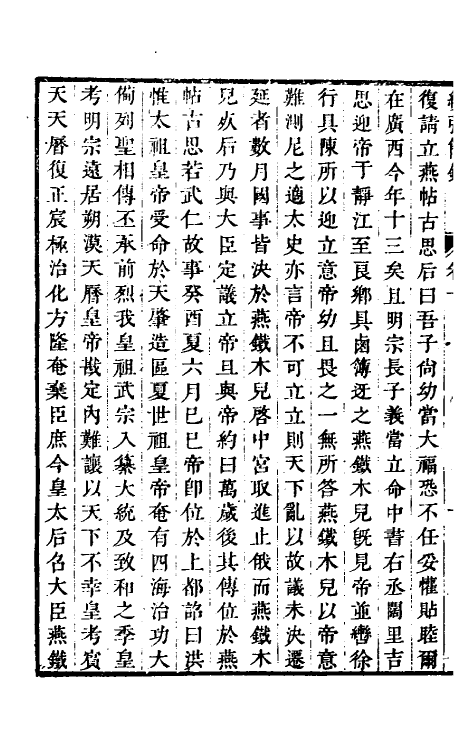 復請立燕帖古思后曰吾子尙幼當大福恐不任妥懽貼睦爾
在廣西今年十三矣且明宗長子義當立命中書右丞闊里吉
思迎帝于靜江至良鄉具鹵簿迓之燕鐵木兒旣見帝並轡徐
行具陳所以迎立意帝幼且畏之一無所答燕鐵木兒以帝意
難測尼之適太史亦言帝不可立立則天下亂以故議未決遷
延者數月國事皆決於燕鐵木兒啓中宮取進止俄而燕鐵木
兒歿后乃與大臣定議立帝且與帝約曰萬歲後其傳位於燕
帖古思若武仁故事癸酉夏六月己巳帝卽位於上都詔曰洪
惟太祖皇帝受命於天肇造區夏世祖皇帝奄有四海治功大
僃列聖相傳丕承前烈我皇祖武宗入纂大統及致和之季皇
考明宗遠居朔漠天曆皇帝戡定內難讓以天下不幸皇考賓
天天曆復正宸極治化方隆奄棄臣庶今皇太后召大臣燕鐵